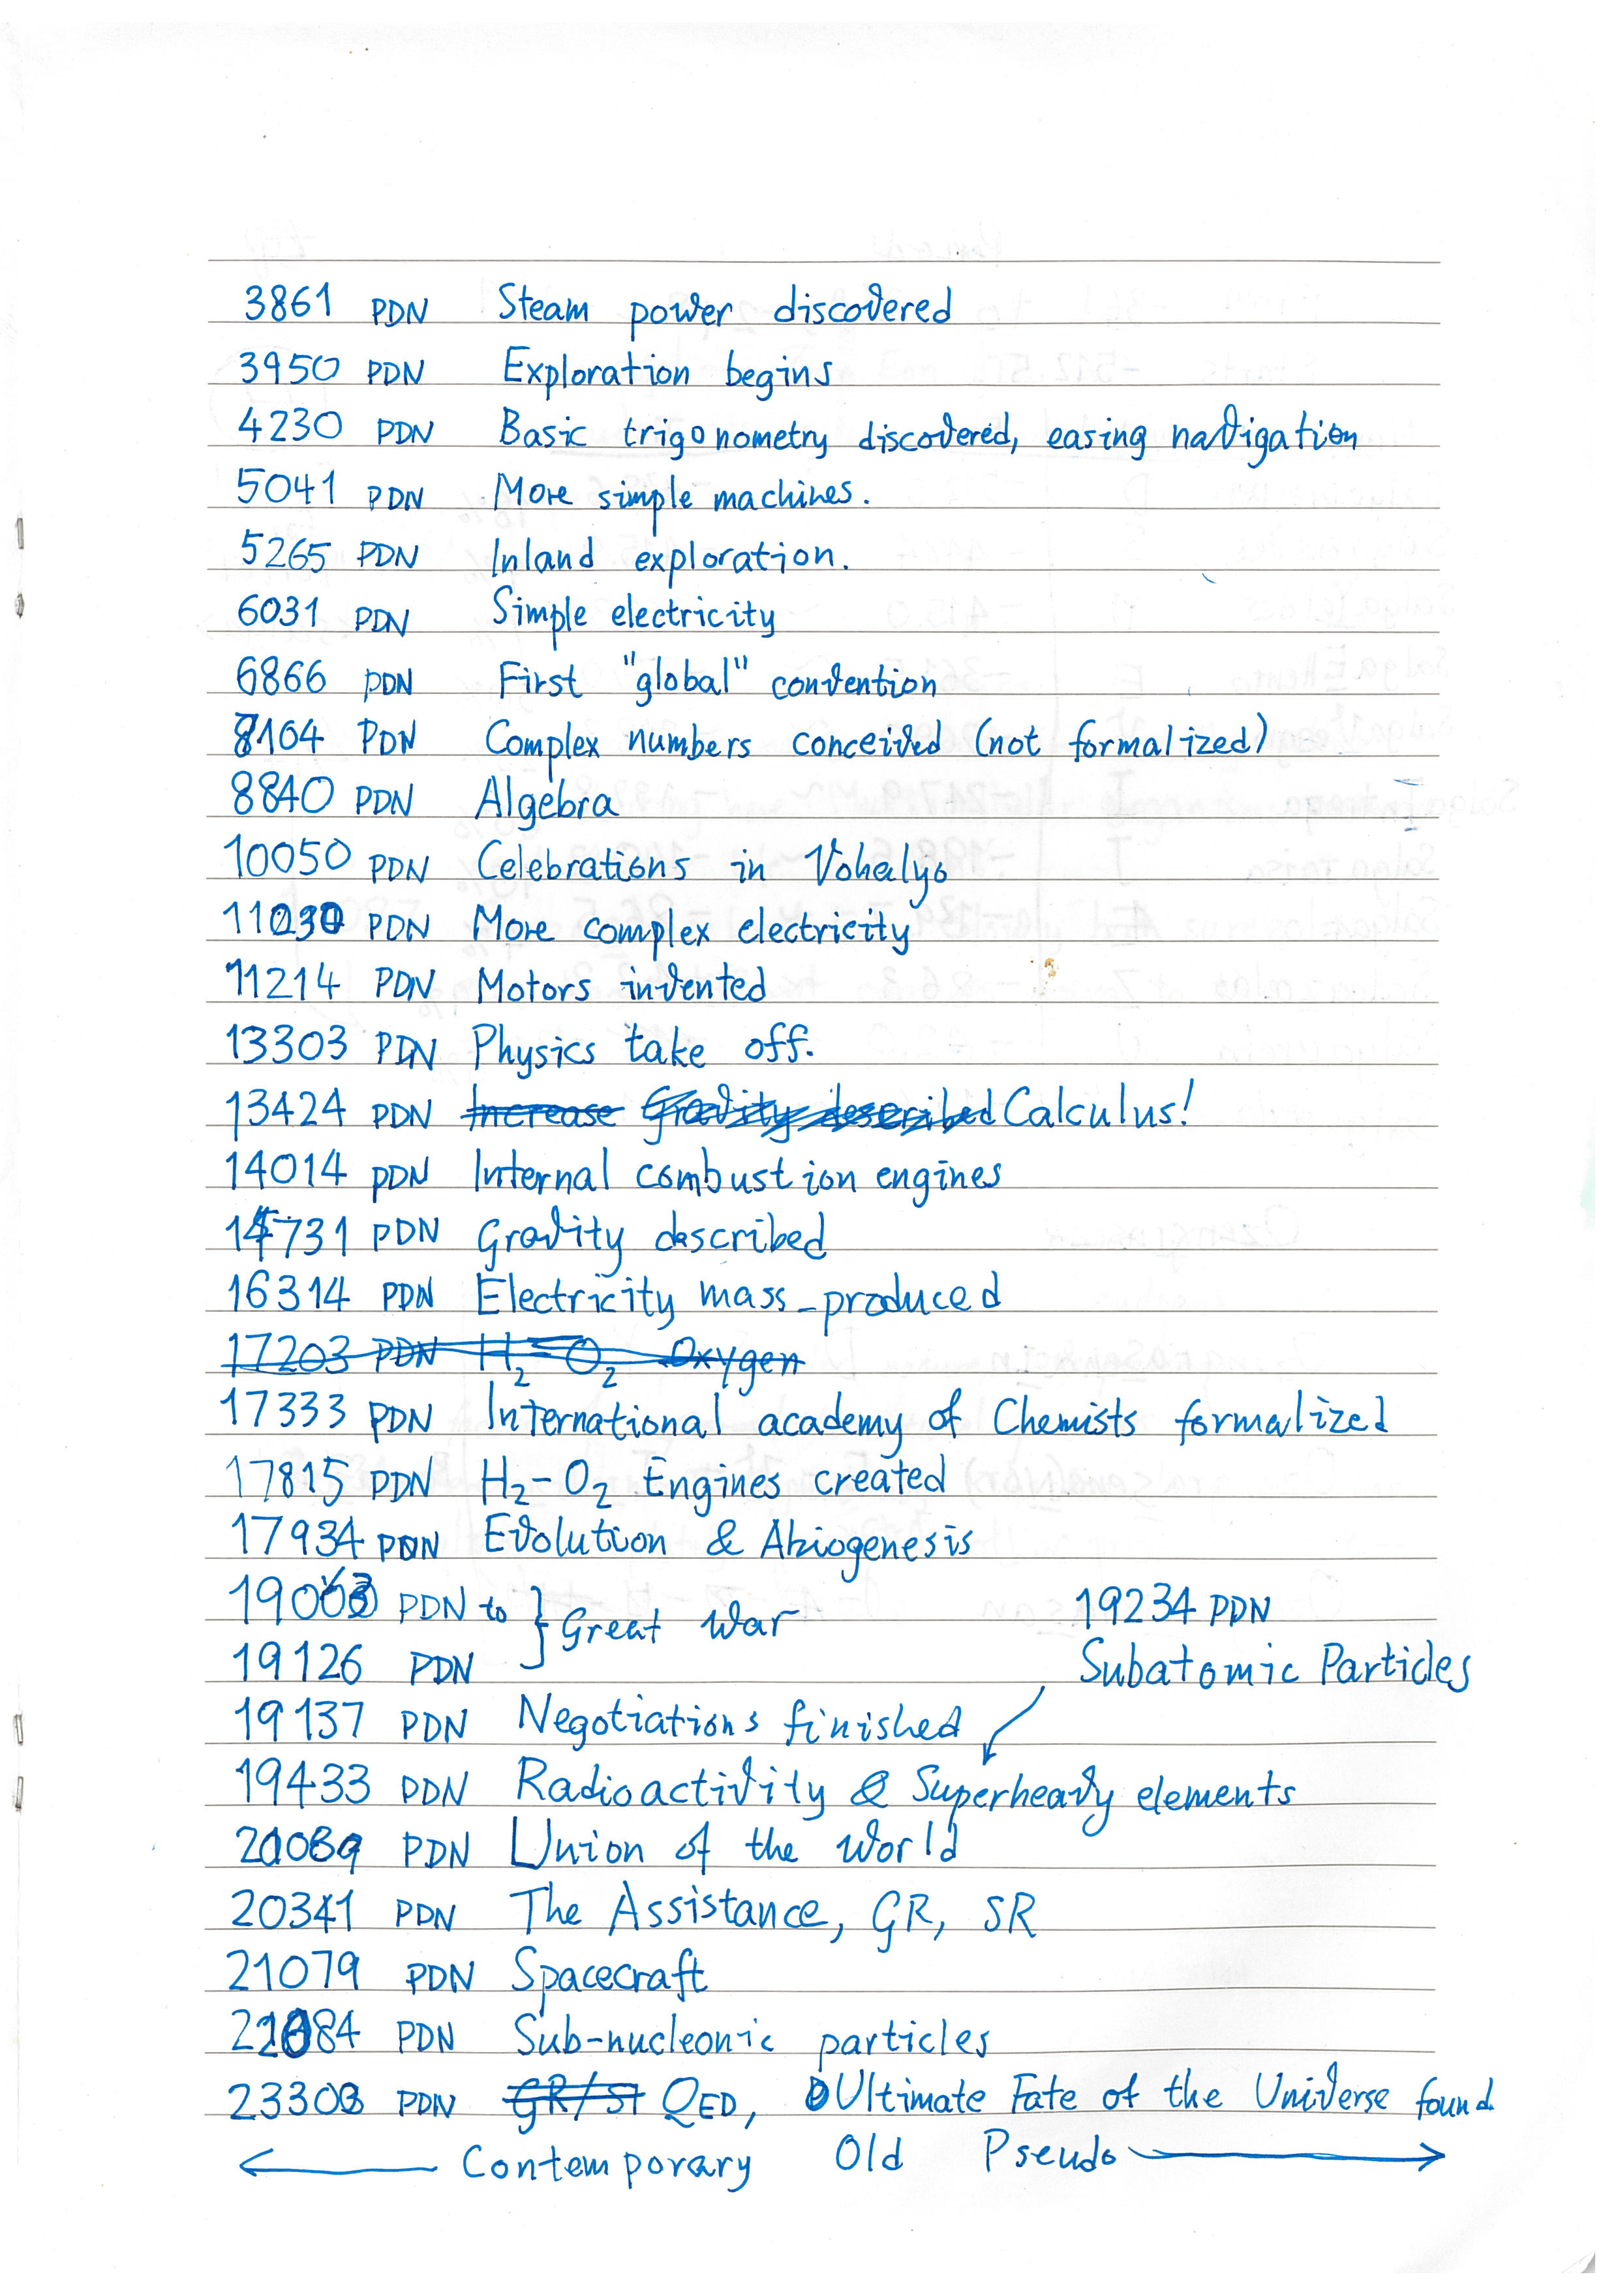 3861 PDN Steam power discovered
3950 PDN Exploration begins
4230 PDN Basic trigonometry discovered, easing navigation
5041 PDN More simple machines.
5265 PDN Inland exploration.
6031 PDN Simple electricity
6866 PDN First "global" convention
8104 PDN Complex numbers conceived (not formalized)
8840 PDN Algebra
10050 PDN Celebrations in Vohalyo
11030 PDN More complex electricity
11214 PDN Motors invented
13303 PDN Physics take off.
13424 PDN Increase Gravity described Calculus!
14014 PDN Internal combustion engines
PDN Gravity described
16314 PDN Electricity mass-produced
17203 PDN H2 O2 Oxygen
17333 PDN International academy of Chemists formalized
17815 PDN H2-O2 Engines created
17934 PDN Evolution & Abiogenesis
PDN to } Great War
19126 PDN
19234 PDN
Subatomic Particles
19137 PDN Negotiations finished
19433 PDN Radioactivity & Superheavy elements
PDN Union of the World
20341 PDN The Assistance, GR, SR
21079 PDN Spacecraft
PDN Sub-nucleonic particles
23303 PDN GR/ST QED, Ultimate Fate of the Universe found
← Contemporary Old Pseudo →